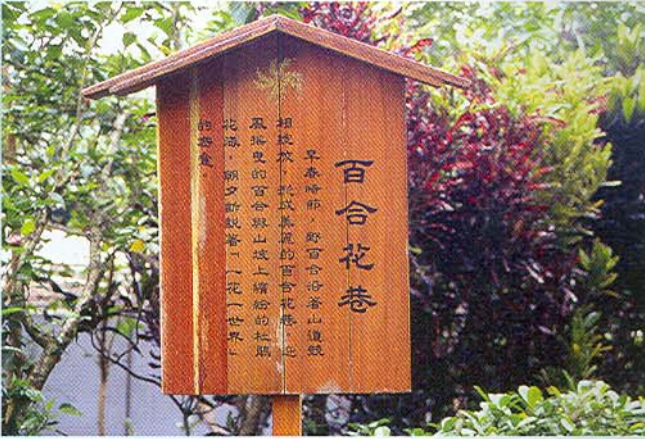 百合花巷
早春時節,野百合沿著山道競
相綻放,形成美麗的百合花巷,迎
風搖曳的百合與山坡上繽紛的杜鵑
花海,朝夕訴說著「一花一世界」
的禪意。